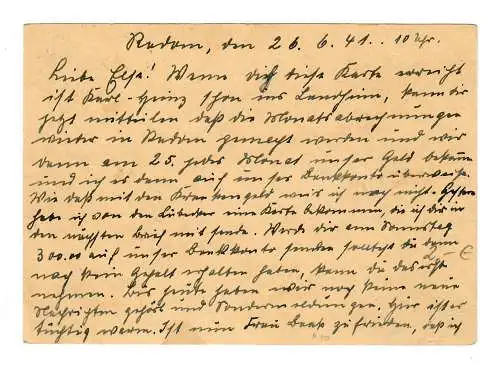 Radom, den 26.6.41. 10 Uhr.
Liebe Else! Wenn dich diese Karte erreicht
ist Karl-Heinz schon ins Landheim, kann dir
jetzt mitteilen daß die Monatsabrechnungen
wieder in Radom gemacht werden und wir
dann am 25. jedes Monat unser Geld bekommen
und ich es dann auf unser Bankkonto überweise.
Wie daß mit den Krankengeld weis ich noch nicht. Gestern
habe ich von den Lübecker eine Karte bekommen, die ich dir in
den nächsten Brief mit sende. Werde dir am Sonntag
300.00 auf unser Bankkonto senden solltest du
noch kein Gehalt erhalten haben, kann du das erst
nehmen. Bis heute haben wir noch keine neue
Nachrichten gehört und Sondermeldungen. Hier ist es
tüchtig warm. Ist nun Frau zufrieden, daß ich